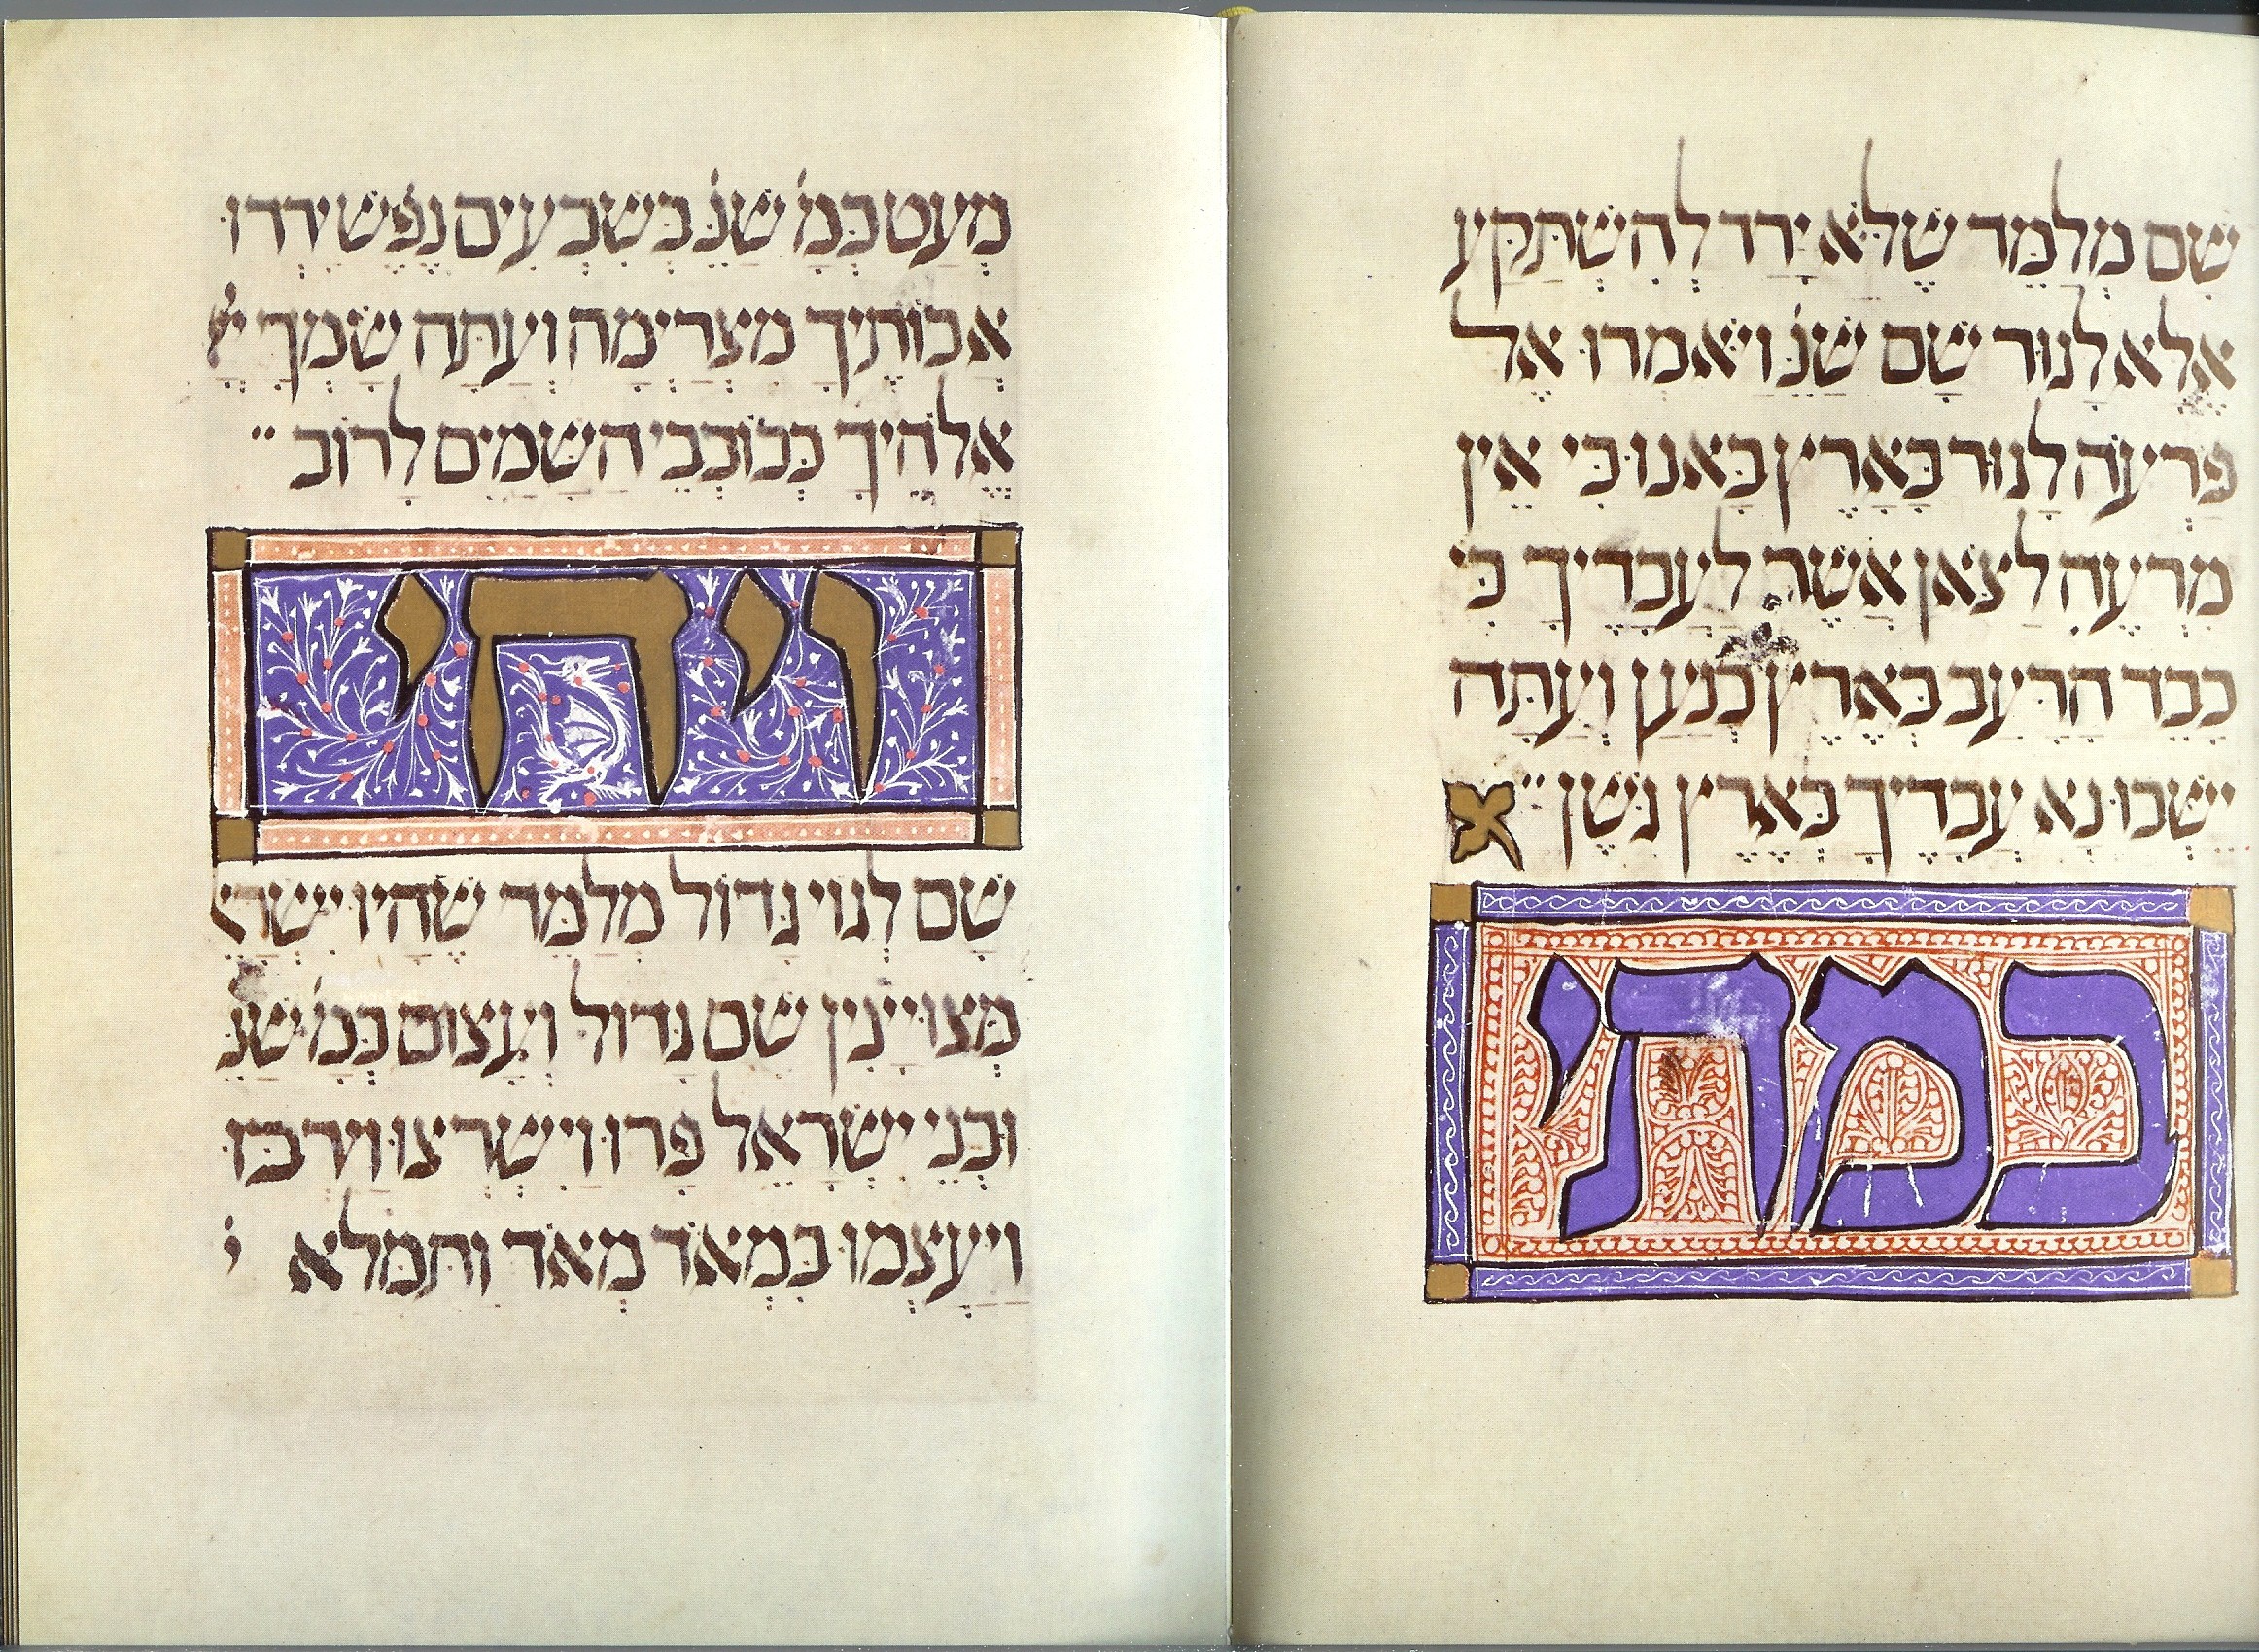 שָׁם מְלַמֵּד שֶׁלֹּא יָרַד לְהִשְׁתַּקֵּעַ
אֶלָּא לָגוּר שָׁם שֶׁנֵּ׳ וַיֹּאמְרוּ אֶל
פַּרְעֹה לָגוּר בָּאָרֶץ בָּאנוּ כִּי אֵין
מִרְעֶה לַצֹּאן אֲשֶׁר לַעֲבָדֶיךָ כִּי
כָבֵד הָרָעָב בְּאֶרֶץ כְּנַעַן וְעַתָּה
יֵשְׁבוּ נָא עֲבָדֶיךָ בְּאֶרֶץ גֹּשֶׁן
במתי
מְעַט כְּמָ׳ שֶׁנֵּ׳ בְּשִׁבְעִים נֶפֶשׁ יָרְדוּ
אֲבוֹתֶיךָ מִצְרָיְמָה וְעַתָּה שָׂמְךָ יְיָ
אֱלֹהֶיךָ כְּכוֹכְבֵי הַשָּׁמַיִם לָרוֹב
ויהי
שָׁם לְגוֹי גָּדוֹל מְלַמֵּד שֶׁהָיוּ יִשְׂרָאֵל
מְצוּיָּינִין שָׁם גָּדוֹל וְעָצוּם כְּמָ׳ שֶׁנֵּ׳
וּבְנֵי יִשְׂרָאֵל פָּרוּ וַיִּשְׁרְצוּ וַיִּרְבּוּ
וַיַּעַצְמוּ בִּמְאֹד מְאֹד וַתִּמָּלֵא